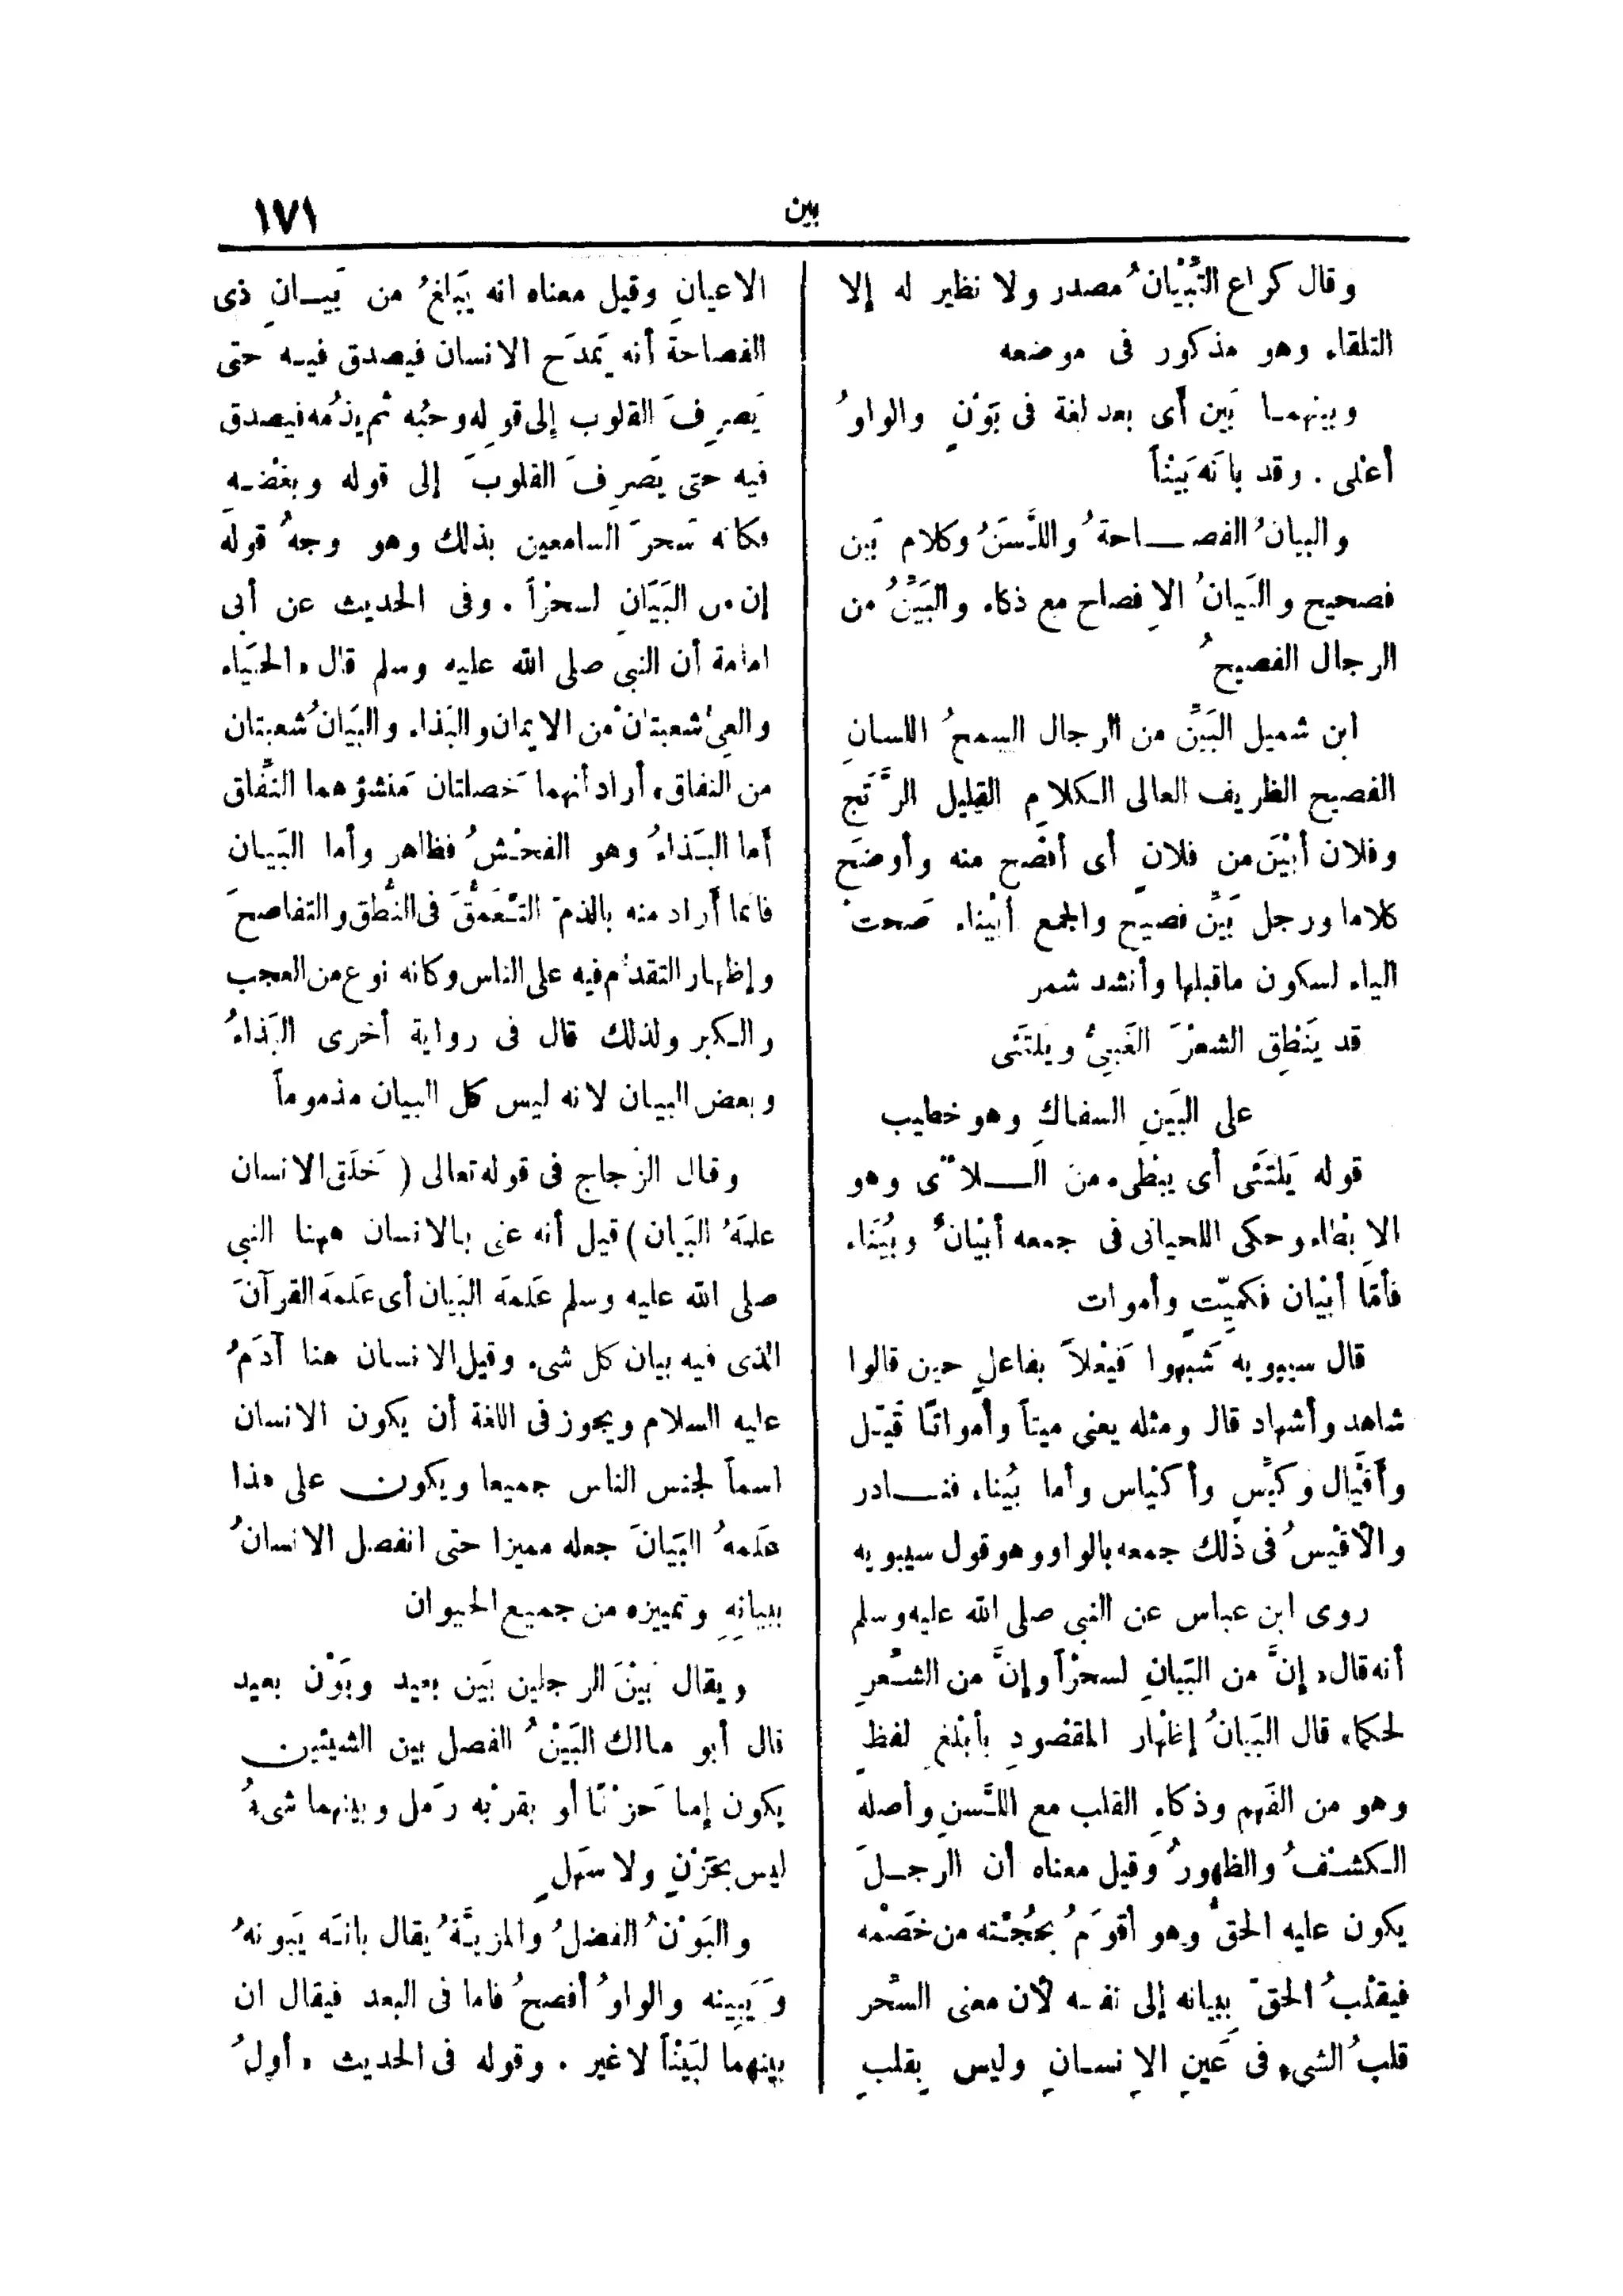 بين
١٧١
وقال كراع التِّبْيَانُ مصدر ولا نظير له إلا
التلقاء وهو مذكور فى موضعه
وبينهما بَين أى بعد لغة فى بَوْنٍ والواوُ
أعْلى . وقد بانَه بَيْناً
والبيانُ الفصـــاحةُ واللَّسَنُ وكلام بَين
فصحيح والبَيانُ الاِفصاح مع ذكاء والبَيِّنُ من
الرجال الفصيحُ
ابن شميل البَيِّن من الرجال السمحُ اللسانِ
الفصيح الظريف العالى الكلامِ القليل الرَّتَج
وفلان أبْيَن من فلانٍ أى أفْصَح منه وأوضَح
كلاما ورجل بَيِّن فصيح والجمع أبْيناء صَحت
الياء لسكون ماقبلها وأنشد شمر
قد يَنْطِق الشعْرَ الغَبىُّ ويَلتَئى
على البَين السفاكِ وهو خطيب
قوله يَلتَئى أى يبْطىء منَ الـــلائى وهو
الاِبْطاء وحكى اللحيانى فى جمعه أبْيانٌ وبُيَناء
فأمّا أبْيان فكميّت وأموات
قال سيبويه شَبهوا فَيْعلاً بفاعلٍ حين قالوا
شاهد وأشهاد قال ومثله يعنى ميتاً وأمواتاً قَيّل
وأقْيَال وكَيِّس وأكْياس وأما بُيناء فنـــادر
والأقْيَسُ فى ذلك جمعه بالواو وهو قول سيبويه
روى ابن عباس عن النبى صلى الله عليه وسلم
أنه قال « إنَّ من البَيانِ لسحْراً وإنَّ من الشعْرِ
لحكما » قال البَيَانُ إظهار المقصودِ بأبْلغ لفظٍ
وهو من الفَهم وذكاءِ القلب مع اللَّسنِ وأصله
الكشْفُ والظهورُ وقيل معناه أن الرجـلَ
يكون عليه الحقُ وهو أقوَمُ بحُجْته من خَصْمه
فيقْلبُ الحقَ ببيانه إلى نفسه لأن معنى السحْر
قلبُ الشىء فى عَينِ الاِنسانِ وليس بقلبٍ
الاعيانِ وقيل معناه انه يَبلغُ من بَيـانِ ذى
الفصاحة أنه يَمدَح الانسان فيصدق فيه حتى
يَصرِفَ القلوب إلى قولِه وحبّه ثم يذمّه فيصدق
فيه حتى يَصرِفَ القلوبَ إلى قوله وبغْضه
فكانه سَحرَ السامعين بذلك وهو وجهُ قولَه
إن من البَيَانِ لسحْراً . وفى الحديث عن أبى
امامة أن النبى صلى الله عليه وسلم قال « الحَيَاء
والعىُ شعبتان من الايمان والبَذاء والبَيَانُ شعبتان
من النفاق » أراد أنهما خَصلتان مَنشؤهما النِّفاق
أما البَذاءُ وهو الفحْشُ فظاهر وأما البَيـان
فانما أراد منه بالذم التعَمُّقَ فى النُّطق والتفاصحَ
وإظهار التقدُم فيه على الناس وكانه نوع من العجب
والكبر ولذلك قال فى رواية أخرى البَذاءُ
وبعض البيـان لانه ليس كل البيان مذموماً
وقال الزجاج فى قوله تعالى ( خَلَق الانسان
علمَهُ البَيان ) قيل أنه عنى بالانسان ههنا النبى
صلى الله عليه وسلم عَلمَه البَيان أى عَلمَه القرآنَ
الذى فيه بيان كل شىء وقيل الانسان هنا آدَمُ
عليه السلام ويجوز فى اللغة أن يكون الانسان
اسماً لجنس الناس جميعا ويكون على هذا
عَلمهُ البَيَانَ جعله مميزا حتى انفصل الانسانُ
ببيانِهِ وتمييزه من جميع الحيوان
ويقال بَيْنَ الرجلين بَين بعيد وبَوْن بعيد
قال أبو مالك البَيْنُ الفصل بين الشيئين
يكون إما حَزْنًا أو بقرْبه رَمل وبينهما شىءُ
ليس بحَزْنٍ ولا سَهلٍ
والبَوْنُ الفضلُ والمزيَّةُ يقال بانَه يَبونهُ
وَيَبِينه والواوُ أفصحُ فاما فى البعد فيقال ان
بينهما لبَيْناً لاغير . وقوله فى الحديث « أولُ